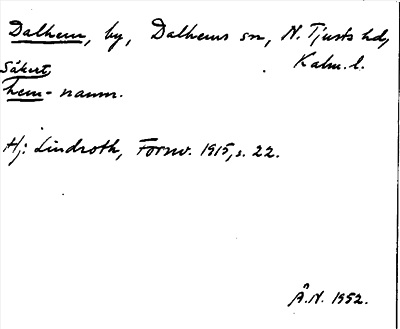 Dalhem, by, Dalhems sn, N. Tjusts hd,
Kalm. l.
Säkert
hem-namn.
Hj: Lindroth, Fornv. 1915, s. 22.
Å.N. 1952.